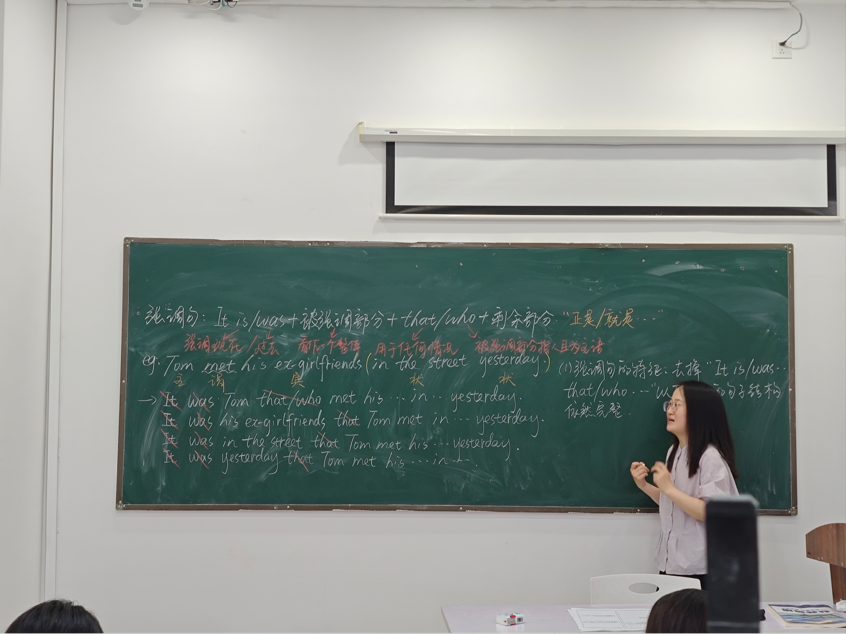 强调句: It is/was + 被强调部分 + that/who + 剩余部分 "正是/就是…"
强调现在/过去 看作一个整体 用于任何情况 被强调部分指人且为主语
eg: Tom met his ex-girlfriends (in the street yesterday.)
主 谓 宾 状 状
→ It was Tom that/who met his … in … yesterday.
It was his ex-girlfriends that Tom met in … yesterday.
It was in the street that Tom met his … yesterday.
It was yesterday that Tom met his … in …
(1) 强调句的特征: 去掉 "It is/was…
that/who …" 的句子结构
依然完整.